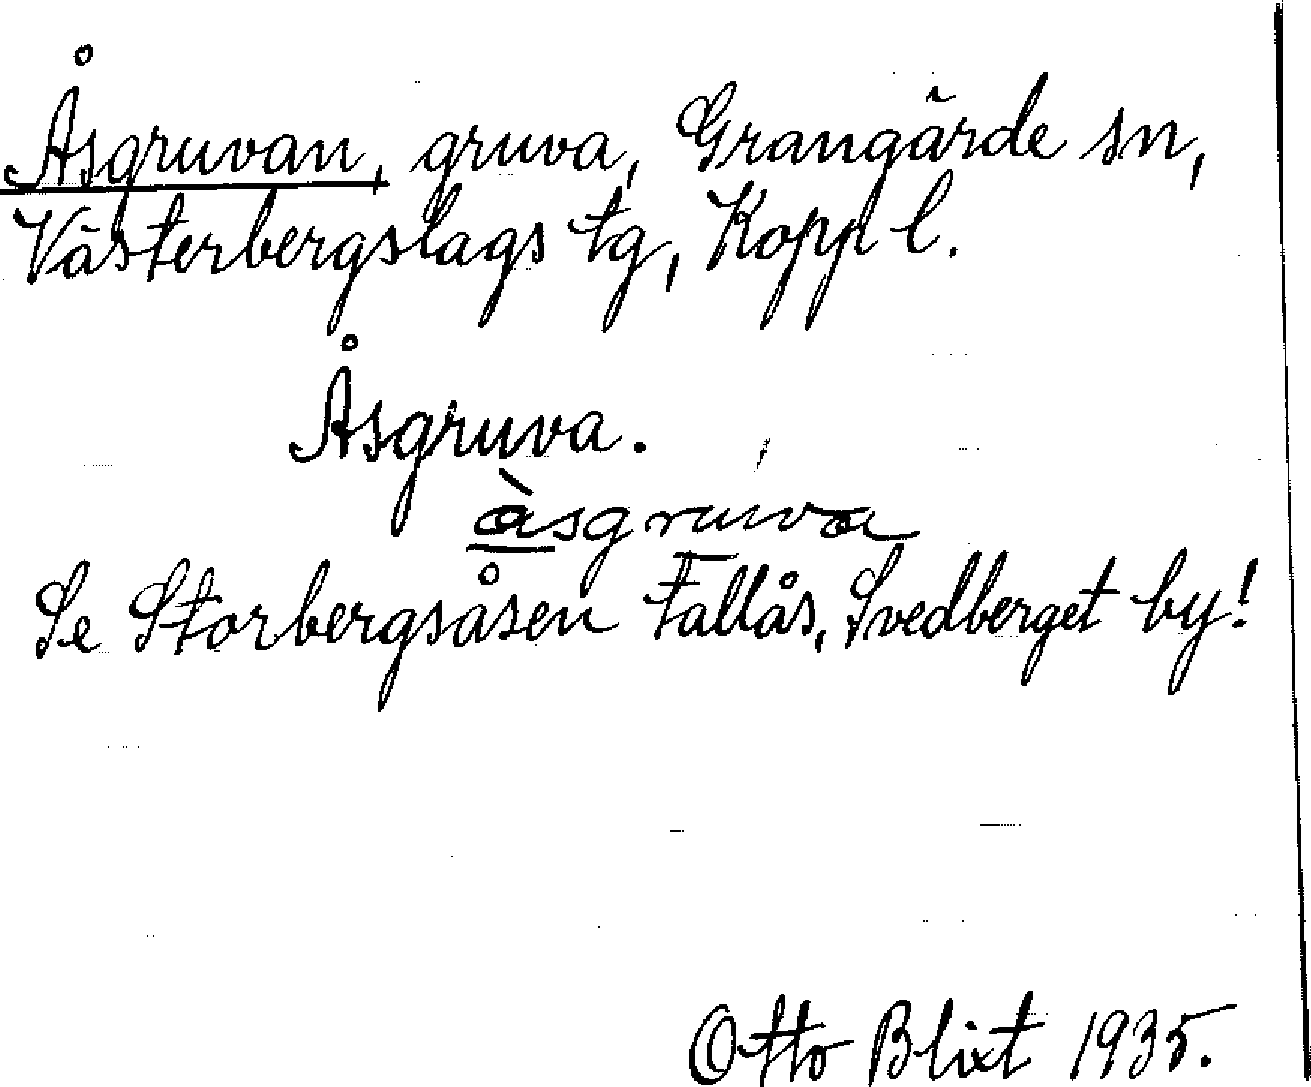 Åsgruvan, gruva, Grangärde sn,
Västerbergslags tg, Koppl l.
Åsgruva.
àsgruva
Se Storbergsåsen Fallås, Svedberget by!
Otto Blixt 1935.